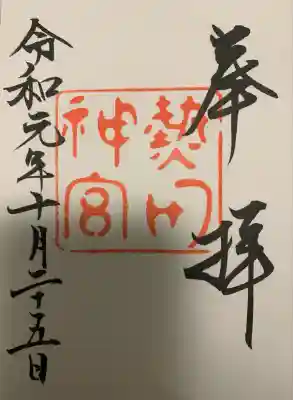 奉拝
熱田神宮
令和元年十月二十五日